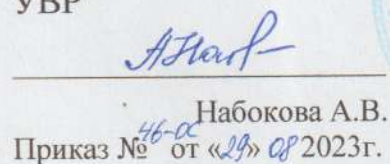 УВР
Набокова А.В.
Приказ № 46-ОС от «29» 08 2023г.